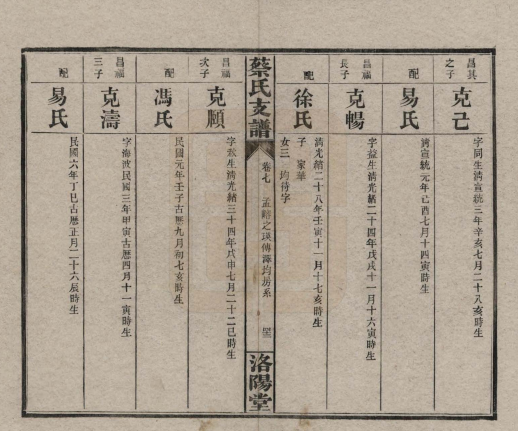 昌其之子
克己
字同生清宣統三年辛亥七月二十八亥時生
配
易氏
清宣統元年己酉七月十四寅時生
昌福長子
克暢
字益生清光緒二十四年戊戌十一月十六寅時生
配
徐氏
清光緒二十八年壬寅十一月十七亥時生
子 家華
女三 均待字
蔡氏支譜
卷七
之瑛傳澤均房系
洛陽堂
昌福次子
克順
字秋生清光緒三十四年戊申七月二十二巳時生
配
馮氏
民國元年壬子古歷九月初七亥時生
昌福三子
克濤
字海波民國三年甲寅古歷四月十一寅時生
配
易氏
民國六年丁巳古歷正月二十六辰時生